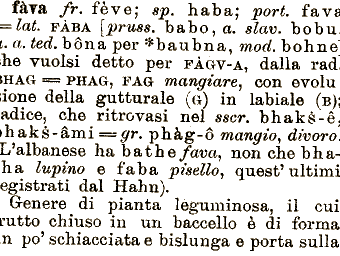 fàva fr. fève; sp. haba; port. fava
= lat. FÀBA [pruss. babo, a. slav. bobu,
a. a. ted. bôna per *baubna, mod. bohne]
che vuolsi detto per FÀGV-A, dalla rad.
BHAG = PHAG, FAG mangiare, con evolu
sione della gutturale (G) in labiale (B);
radice, che ritrovasi nel sscr. bhakš-ê,
bhakš-âmi = gr. phàg-ô mangio, divoro.
L'albanese ha bathe fava, non che bha-
ha lupino e faba pisello, quest' ultimi
registrati dal Hahn).
Genere di pianta leguminosa, il cui
frutto chiuso in un baccello è di forma
un po' schiacciata e bislunga e porta sulla